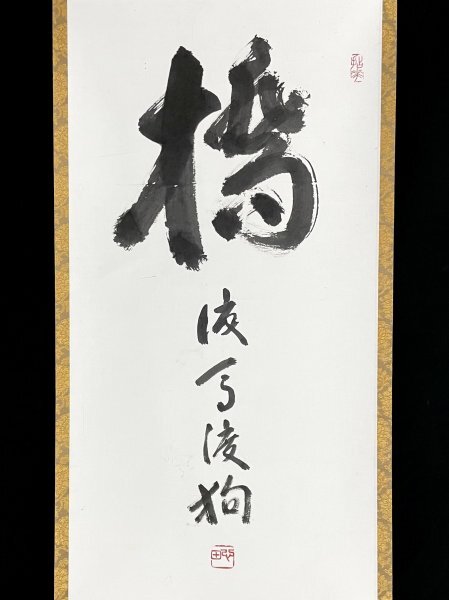 橋
渡馬渡狗